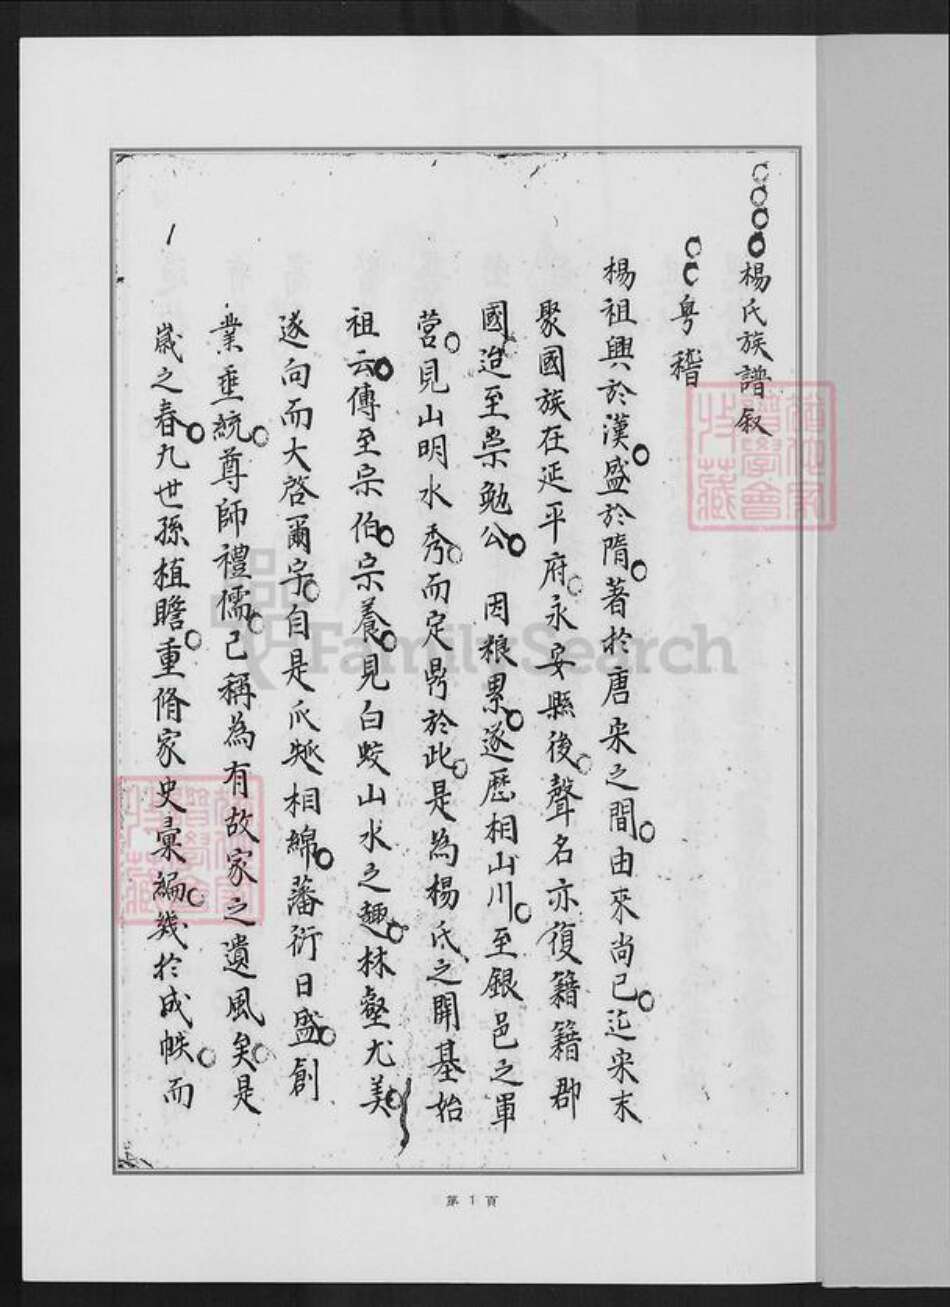 楊氏族譜叙
粤稽
楊祖興於漢。盛於隋。著於唐宋之間。由來尚已。迄宋末
聚國族在延平府。永安縣後。聲名亦復籍籍郡
國迨至崇勉公。因粮累。遂歷相山川。至銀邑之軍
營。見山明水秀。而定鼎於此。是為楊氏之開基始
祖云。傳至宗伯。宗養。見白蛟山水之趣。林壑尤美。
遂向而大啓爾宇。自是瓜瓞相綿。蕃衍日盛。創
業垂統。尊師禮儒。已稱為有故家之遺風矣。是
歲之春。九世孫植瞻。重脩家史彙編。幾於成帙。而
第 1 頁
FamilySearch